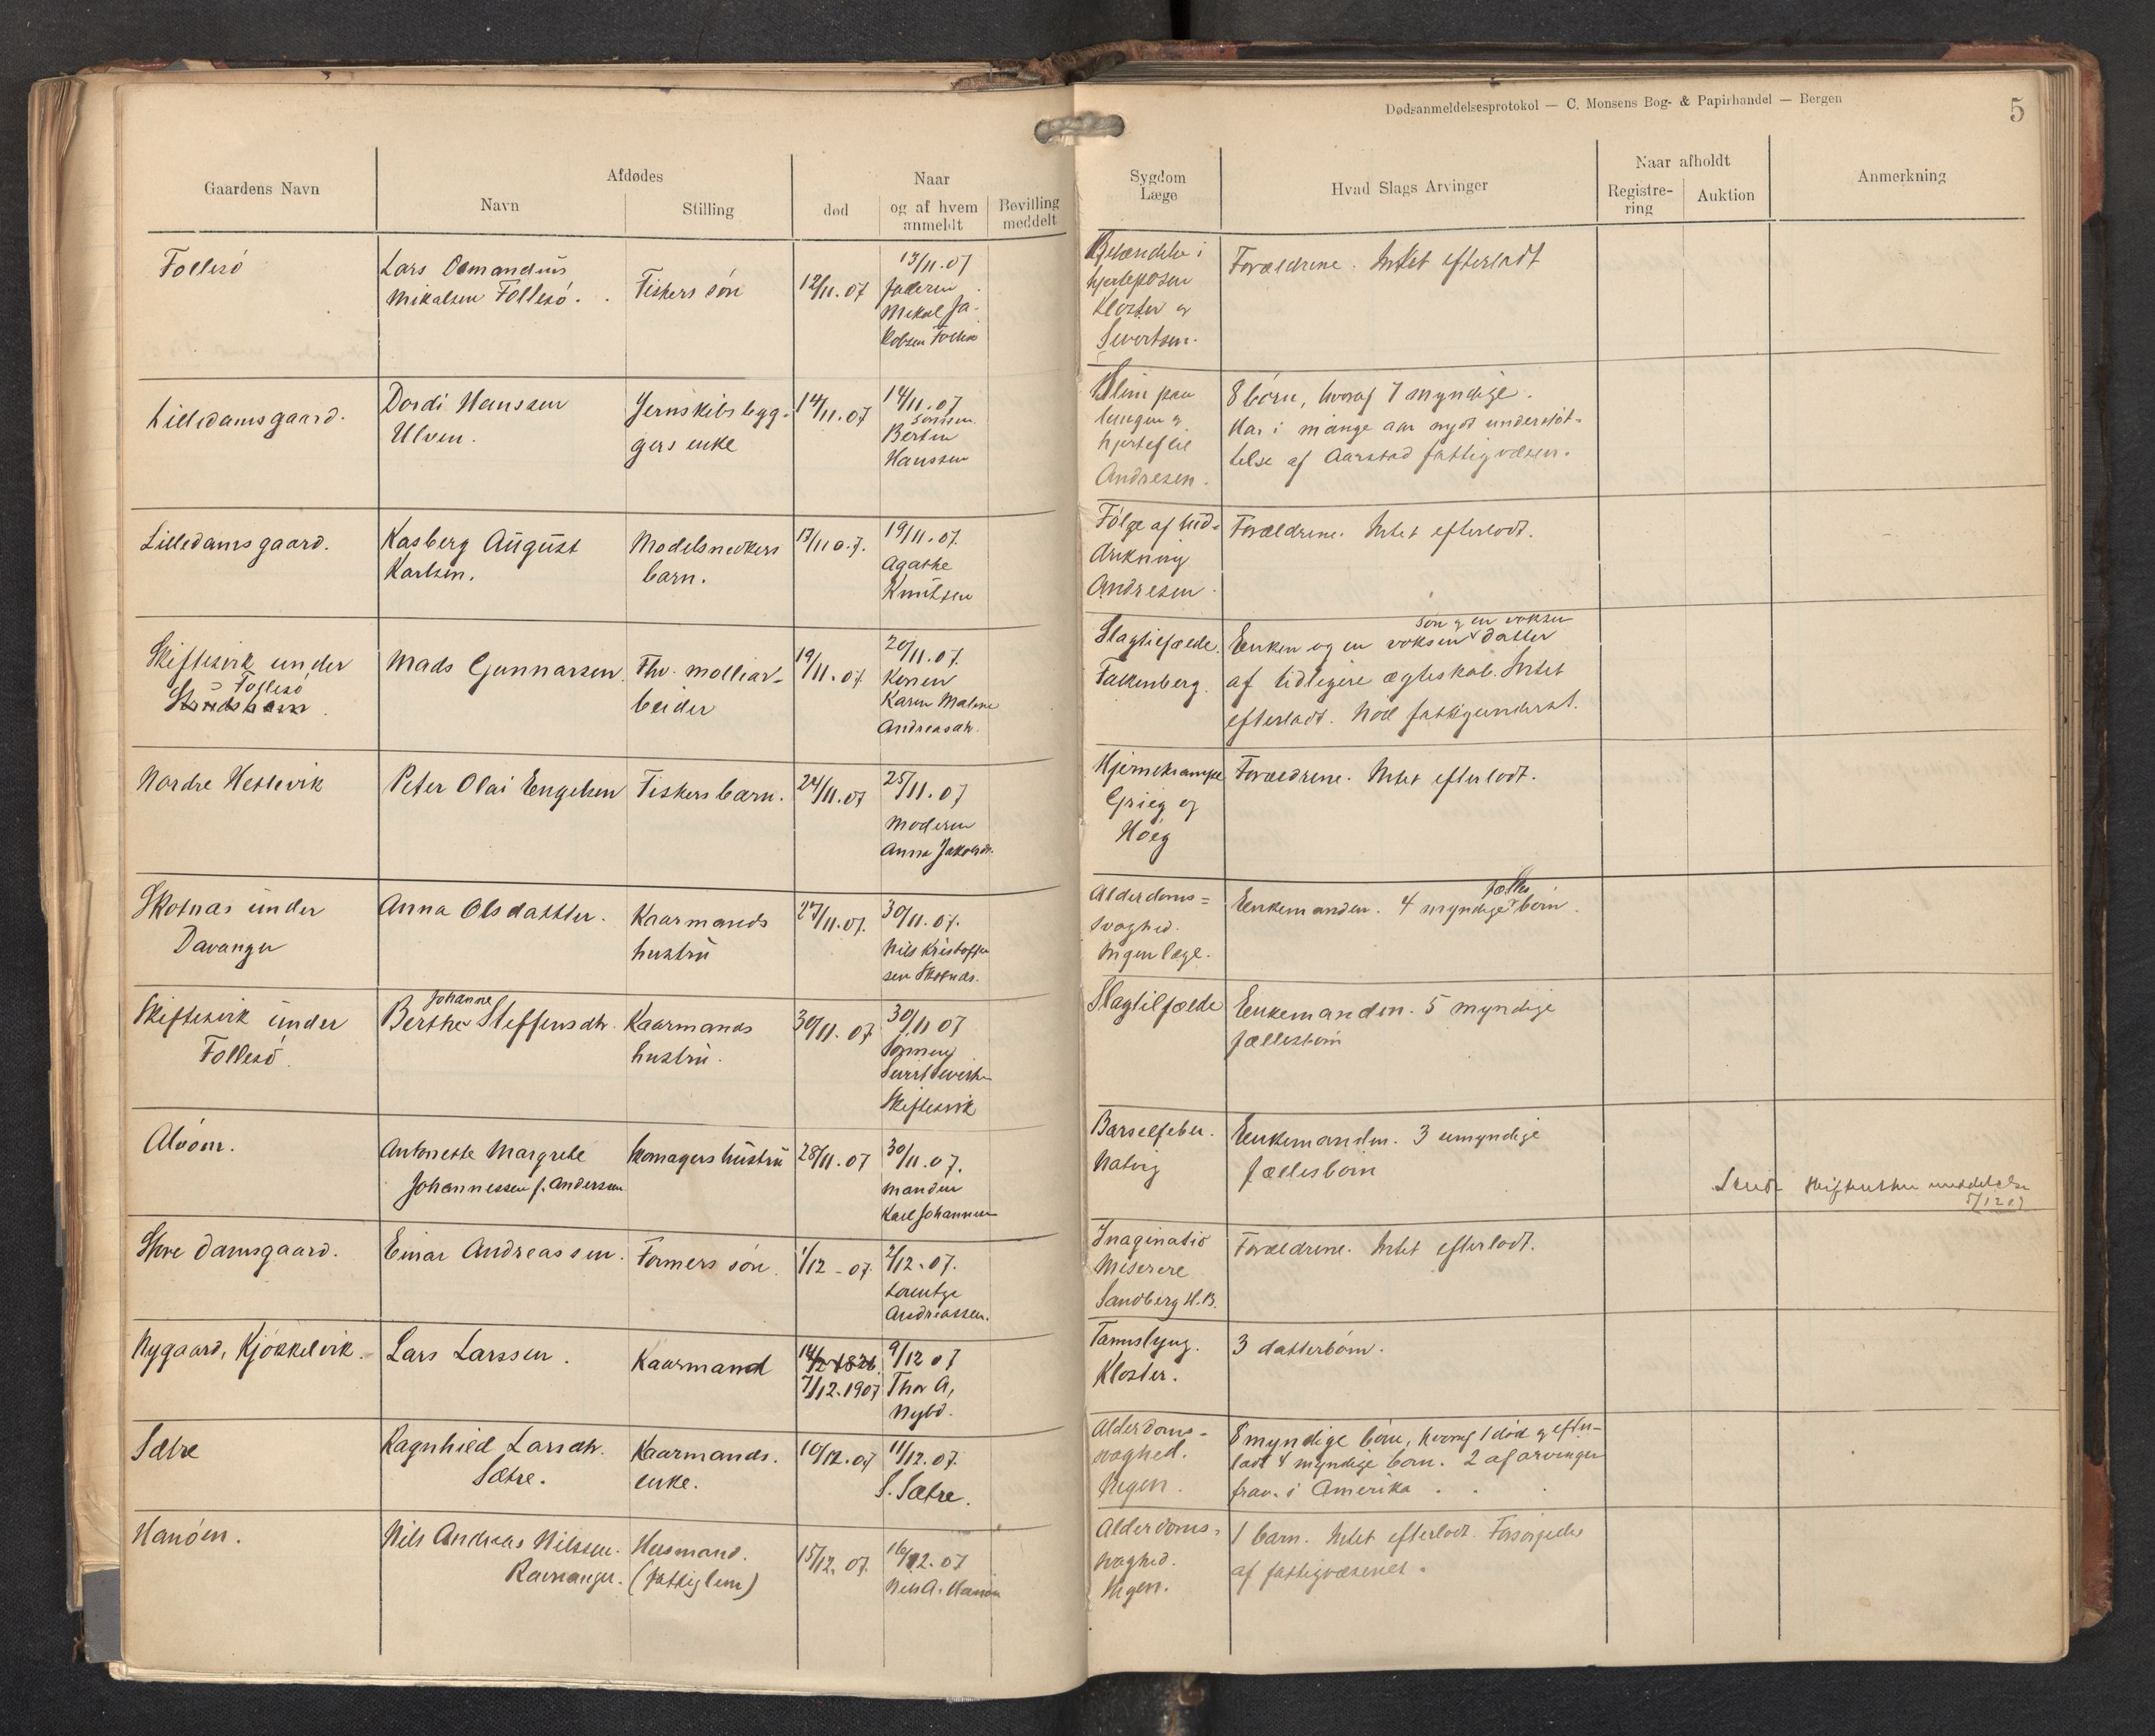 Dødsanmeldelsesprotokol — C. Monsens Bog- & Papirhandel — Bergen
5
Gaardens Navn
Afdødes
Navn
Stilling
Naar
død
og af hvem anmeldt
Bevilling meddelt
Sygdom Læge
Hvad Slags Arvinger
Naar afholdt
Registre-ring
Auktion
Anmerkning
Follesö
Lars Osmandus
Mikalsen Follesö.
Fiskers sön
12/11.07
13/11.07
faderen
Mikal Ja-
kobsen Follesö
Betændelse i
hjerteposen
Kloster og
Sivertsen.
Forældrene. Intet efterladt
Lilledamsgaard.
Dordi Hanssen
Ulven.
Jernskibsbygg-
gers enke
14/11.07
14/11.07
sönnen
Bertin
Hanssen
Slim paa
lungen og
hjertefeil
Andresen.
8 börn, hvoraf 7 myndige.
Har i mange aar nydt understöt-
telse af Aarstad fattigvæsen.
Lilledamsgaard.
Kasberg August
Karlsen.
Modelsnedkers
barn.
17/11 07.
19/11.07.
Agathe
Knutsen
Fölge af
Andresen
Forældrene. Intet efterladt.
Skiftesvik under
Follesö
Mads Gunnarsen
Fhv. möllear-
beider
19/11.07
20/11.07.
Konen
Karen Malene
Andreasdtr.
Slagtilfælde.
Falkenberg.
sön og en voksen
Enken og en voksen datter
af tidligere ægteskab. Intet
efterladt. Nöd fattigunderst.
Nordre Hetlevik
Peter Olai Engelsen
Fiskers barn.
24/11.07
25/11.07
Moderen
Anna Jakobsdr.
Hjernekrampe
Grieg og
Höeg
Forældrene. Intet efterladt.
Skotnæs under
Davanger
Anna Olsdatter.
Kaarmands
hustru
27/11.07.
30/11.07.
Nils Kristoffer-
sen Skotnæs.
Alderdoms=
svaghed.
Ingen læge.
fælles
Enkemanden. 4 myndige börn.
Skiftesvik under
Follesö.
Johanne
Berthe Steffensdtr.
Kaarmands
hustru.
30/11.07
30/11 07
Sönnen
Sivert Sivertsen
Skiftesvik
Slagtilfælde
Enkemanden. 5 myndige
fællesbörn
Alvöen.
Antonette Margrete
Johannessen f. Andersen
Skomagers hustru
28/11.07
30/11.07.
manden
Karl Johannessen
Barselfeber.
Natvig
Enkemanden. 3 umyndige
fællesbörn
Send
5/12 07
Store Damsgaard.
Einar Andreassen.
Formers sön
1/12-07.
2/12.07.
Lorentze
Andreassen.
Inaginatio
Miserere
Sandberg H.B.
Forældrene. Intet efterladt.
Nygaard, Kjökkelvik.
Lars Larssen.
Kaarmand
7/12.1907
9/12 07
Thor A.
Nybö.
Kloster.
3 datterbörn.
Sætre
Ragnhild Larsdtr.
Sætre.
Kaarmands.
enke.
10/12.07
11/12.07.
S. Sætre.
Alderdoms-
svaghed.
Ingen.
8 myndige börn, hvoraf 1 död og efter-
ladt 4 myndige börn. 2 af arvinger
frav. i Amerika.
Hanöen.
Nils Andreas Nilssen
Ravnanger.
Husmand.
(fattiglem)
15/12.07.
16/12.07
Nils A. Hanöen
Alderdoms-
svaghed.
Ingen.
1 barn. Intet efterladt. Forsörgedes
af fattigvæsenet.